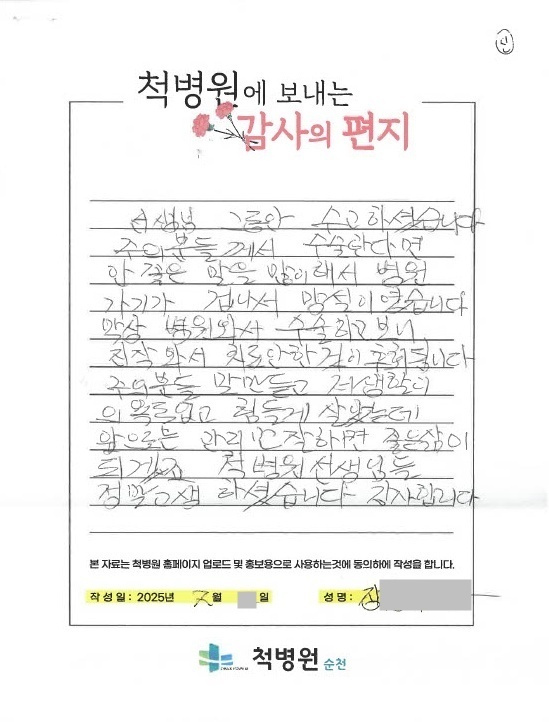 인
척병원에 보내는
감사의 편지
선생님 그동안 수고하셨습니다
주의분들께서 수술한다면
안 좋은 말을 많이해서 병원
가기가 겁나서 망설이였습니다
막상 병원와서 수술하고보니
진작 와서 치료안한 것이 후회됩니다
주의분들 말만듣고 저생활이
의욕도없고 힘들게 살았는데
앞으로는 관리만 잘하면 좋은삶이
되게죠 척병원선생님들
정말고생 하셨습니다 감사합니다
본 자료는 척병원 홈페이지 업로드 및 홍보용으로 사용하는것에 동의하에 작성을 합니다.
작성일 : 2025년 7월 일
성명 :
척병원 순천